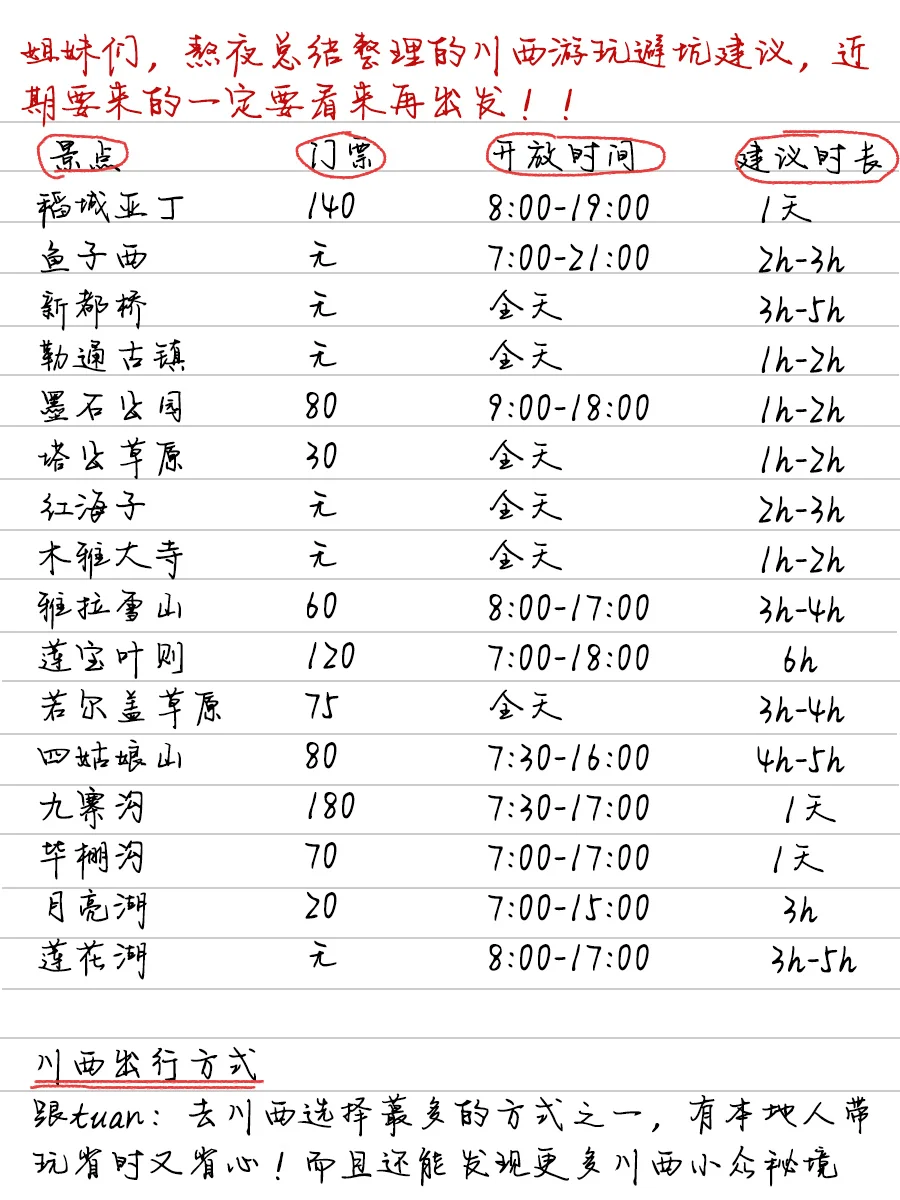 姐妹们，熬夜总结整理的川西游玩避坑建议，近
期要来的一定要看来再出发！！
景点 门票 开放时间 建议时长
稻城亚丁 140 8:00-19:00 1天
鱼子西 无 7:00-21:00 2h-3h
新都桥 无 全天 3h-5h
勒通古镇 无 全天 1h-2h
墨石公园 80 9:00-18:00 1h-2h
塔公草原 30 全天 1h-2h
红海子 无 全天 2h-3h
木雅大寺 无 全天 1h-2h
雅拉雪山 60 8:00-17:00 3h-4h
莲宝叶则 120 7:00-18:00 6h
若尔盖草原 75 全天 3h-4h
四姑娘山 80 7:30-16:00 4h-5h
九寨沟 180 7:30-17:00 1天
毕棚沟 70 7:00-17:00 1天
月亮湖 20 7:00-15:00 3h
莲花湖 无 8:00-17:00 3h-5h
川西出行方式
跟tuan：去川西选择最多的方式之一，有本地人带
玩省时又省心！而且还能发现更多川西小众秘境